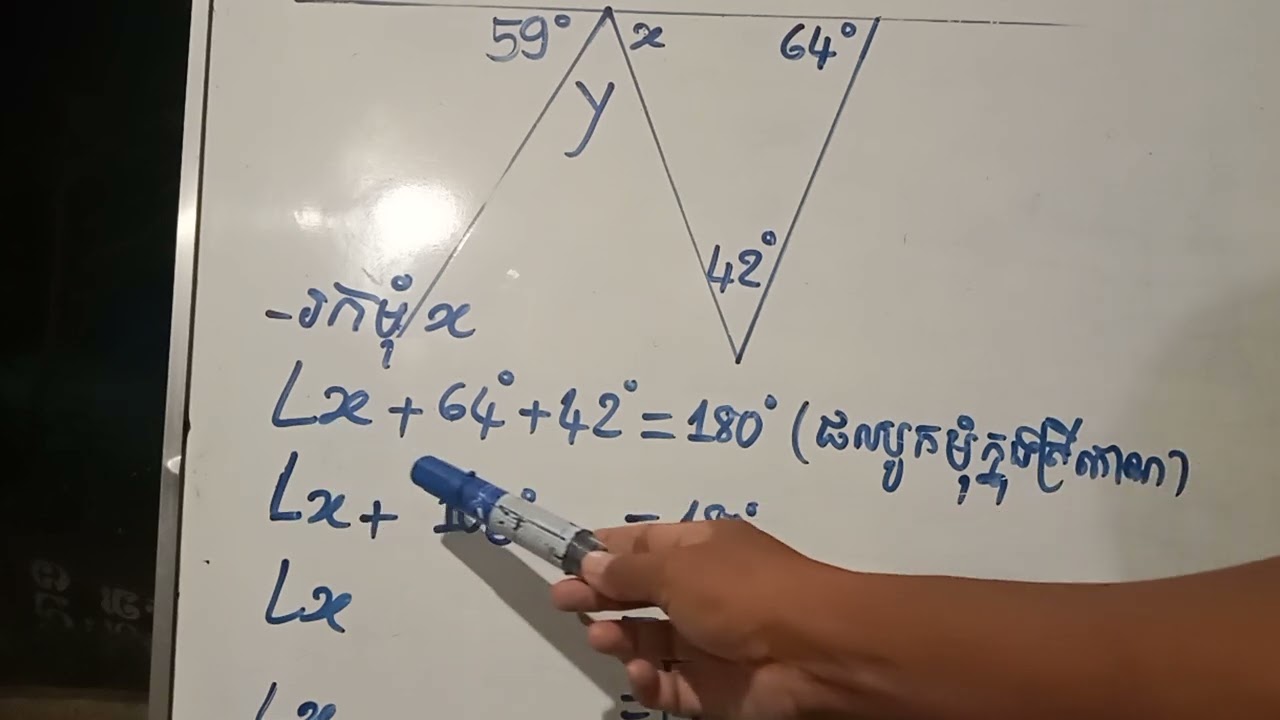 59° x 64°
y
42°
-រកមុំ x
Lx + 64° + 42° = 180° (ផលបូកមុំក្នុងត្រីកោណ)
Lx + = 180°
Lx
Lx =